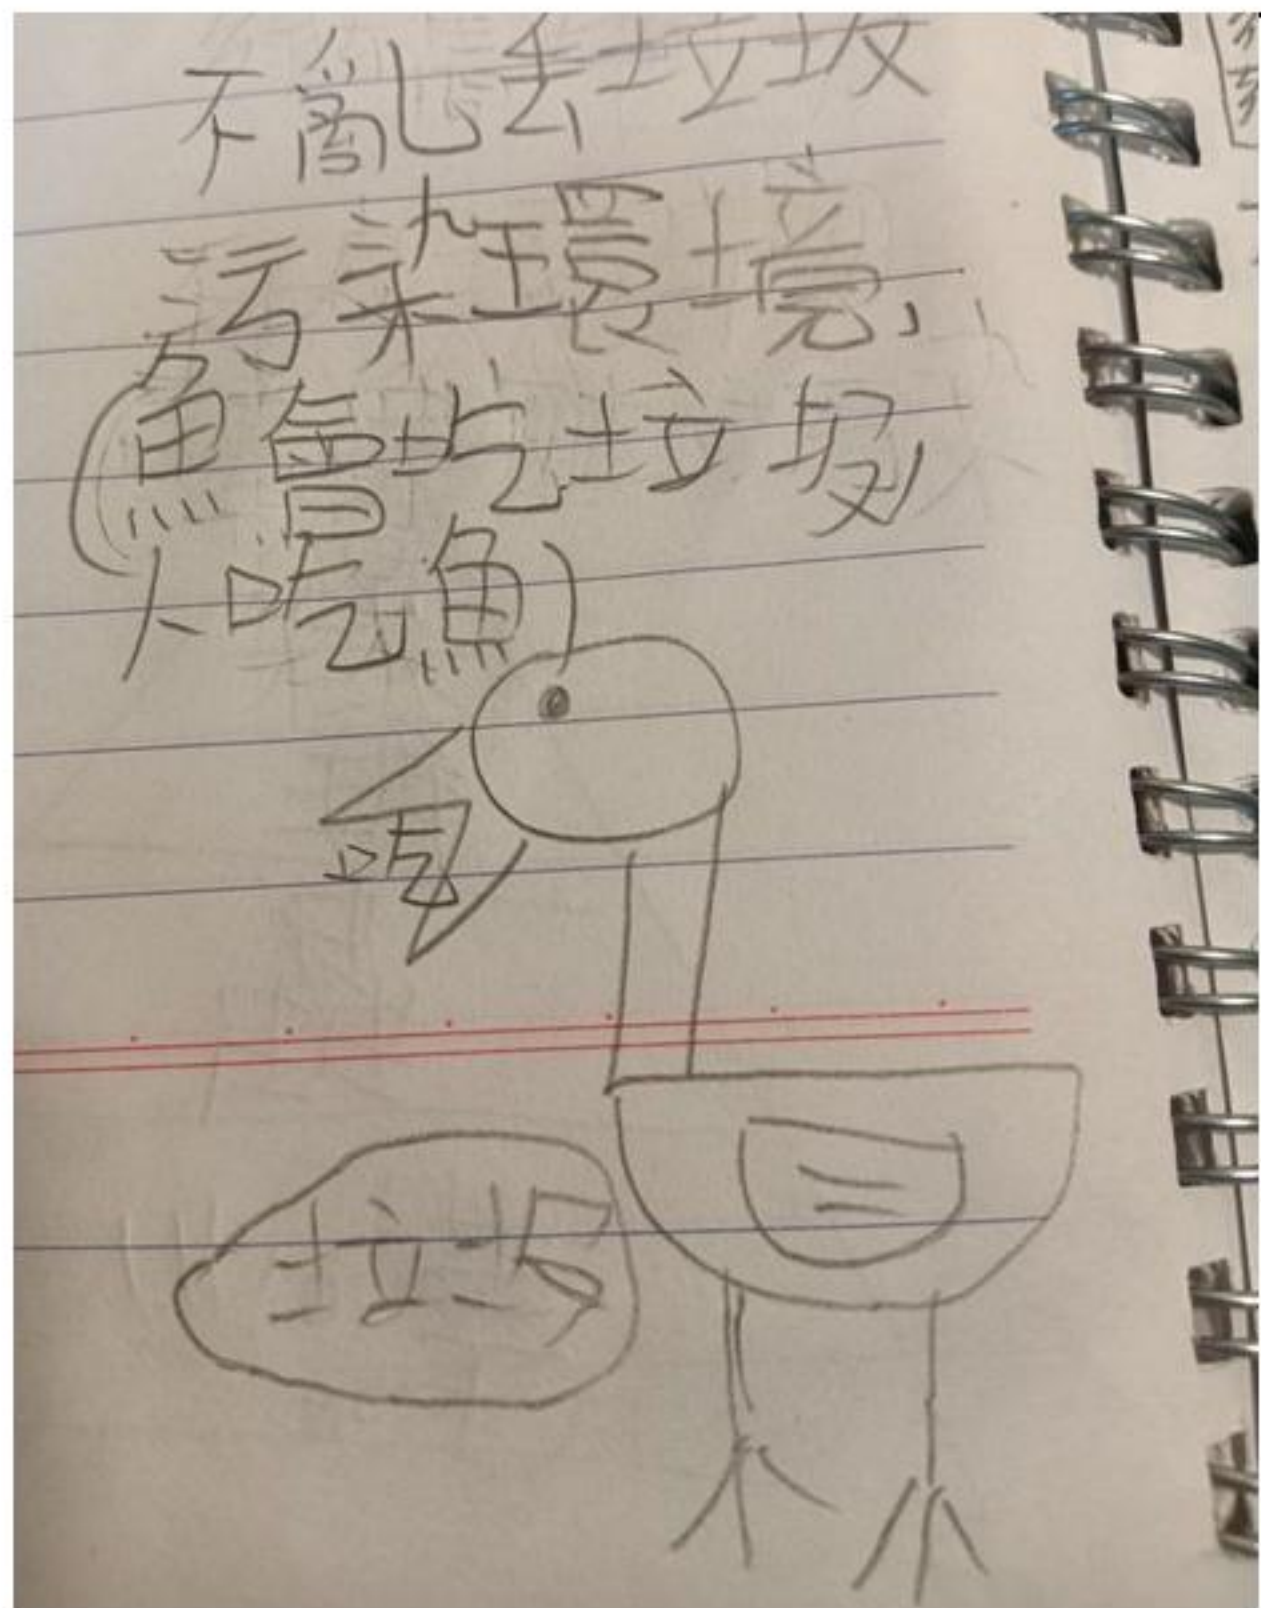 不亂丟垃圾
污染環境,
(魚會吃垃圾,
人吃魚)
吃
垃圾